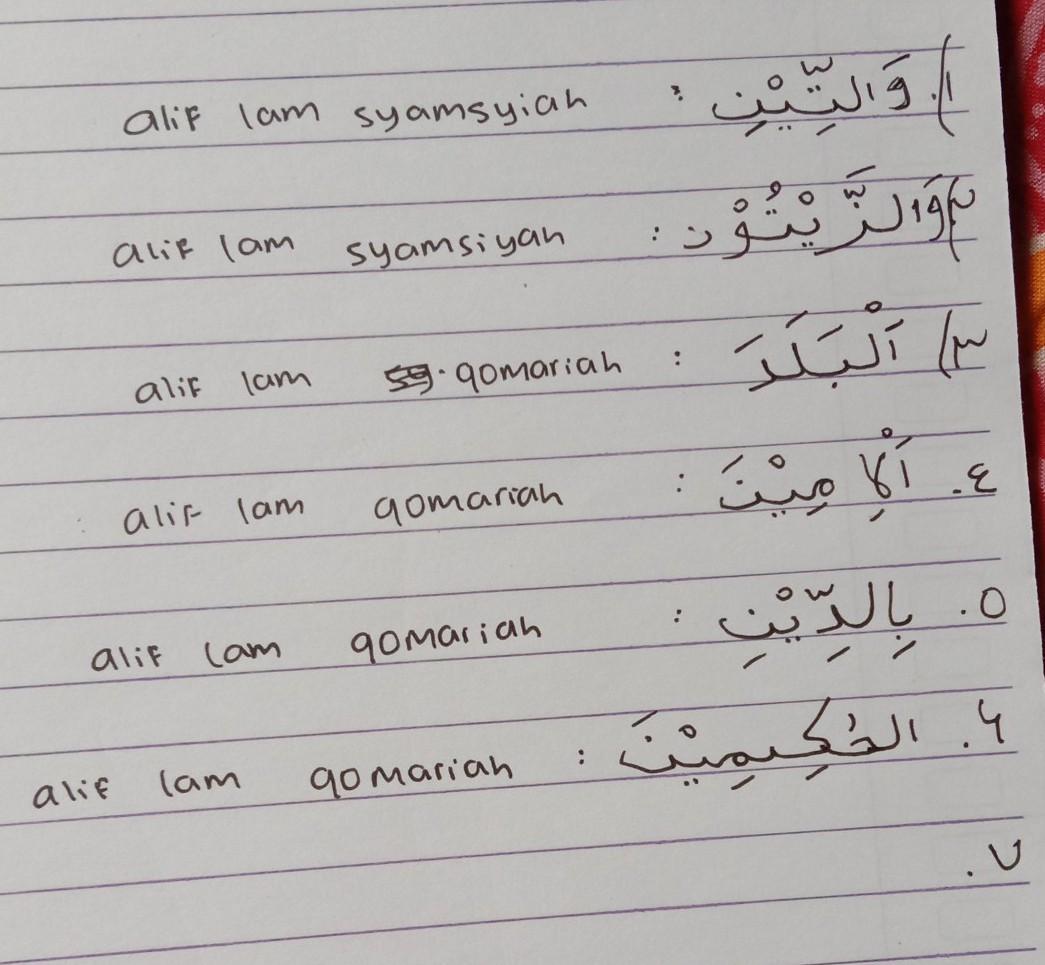 ١) وَالتِّيْنِ : alif lam syamsyiah
٢) وَالزَّيْتُوْن : alif lam syamsiyah
٣) اَلْبَلَدَ : alif lam qomariah
٤. اَلْاِمِيْنَ : alif lam qomariah
٥. بِالدِّيْنِ : alif lam qomariah
٦. الحٰكِمِيْنَ : alif lam qomariah
٧.